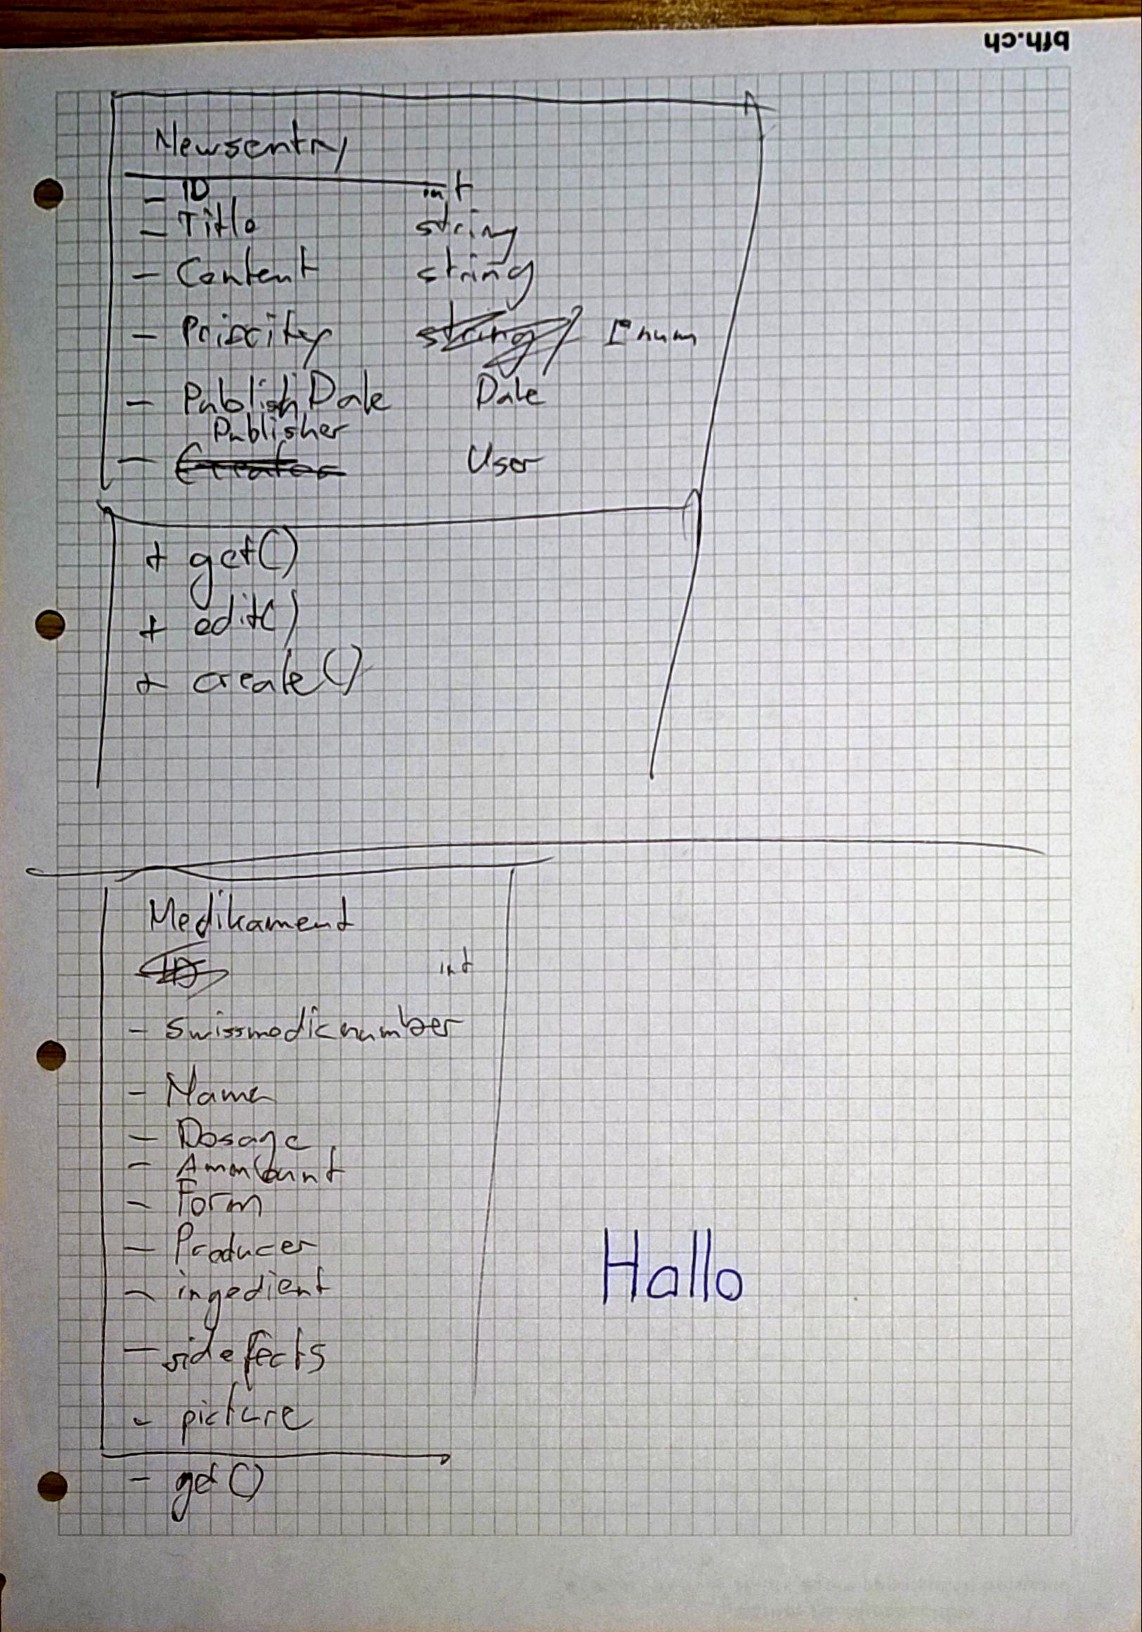 bfh.ch
Newsentry
- ID int
- Title string
- Content string
- Priority string Enum
- PublishDate Date
Publisher
- Creator User
+ get()
+ edit()
+ create()
Medikament
ID int
- swissmedicnumber
- Name
- Dosage
- Ammount
- Form
- Producer
- ingedient
- sidefects
- picture
- get()
Hallo